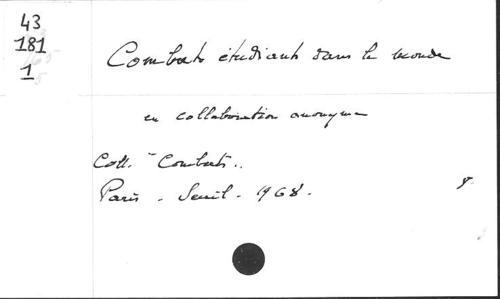 43
181
1
Combats étudiants dans le monde
en collaboration anonyme
Coll. "Combats"
Paris - Seuil - 1968.